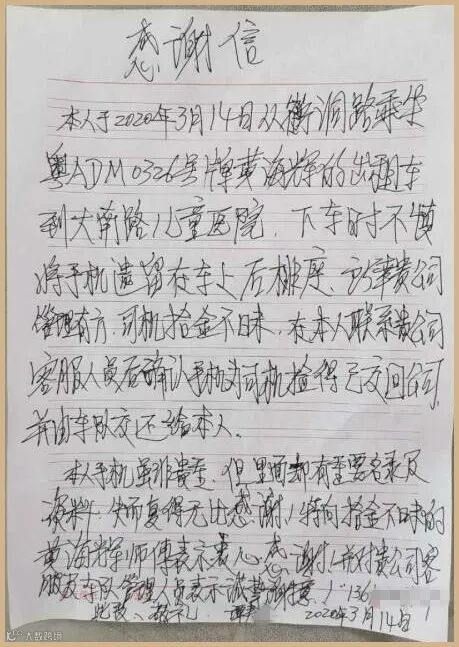 感谢信
本人于2020年3月14日从衡洞路乘坐
粤ADM0326号牌黄海辉的出租车
到大南路儿童医院,下车时不慎
将手机遗留在车上后排座,幸贵公司
管理有方,司机拾金不昧,在本人联系贵公司
客服人员后确认手机为司机捡得已交回公司,
并由车队交还给本人。
本人手机虽非贵重,但里面却有重要名录及
资料,失而复得无比感谢!特向拾金不昧的
黄海辉师傅表示衷心感谢!并对贵公司客
服及车队管理人员表示诚挚谢意!136
此致、敬礼
2020年3月14日
大数跨境